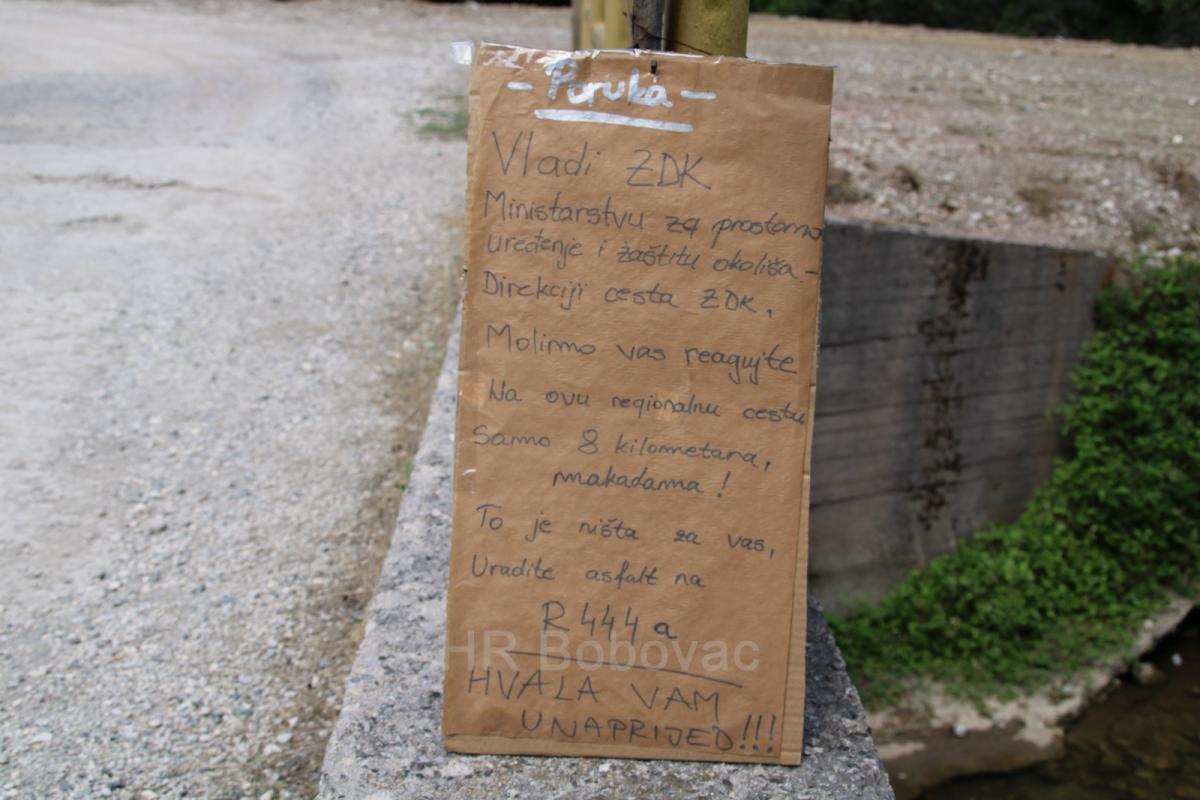 - Poruka -
Vladi ZDK
Ministarstvu za prostorno
uređenje i zaštitu okoliša -
Direkciji cesta ZDK,
Molimo vas reagujte
Na ovu regionalnu cestu
Samo 8 kilometara,
makadama!
To je ništa za vas,
Uradite asfalt na
R 444 a
HR Bobovac
HVALA VAM
UNAPRIJED!!!